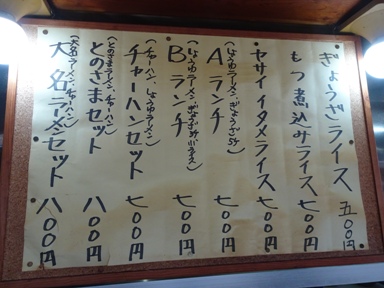 ぎょうざライス 五〇〇円
もつ煮込みライス 七〇〇円
ヤサイイタメライス 七〇〇円
Aランチ 七〇〇円
(しょうゆラーメン・ぎょうざ5ケ)
Bランチ 七〇〇円
(しょうゆラーメン・ぎょうざ5ケ・小ライス)
チャーハンセット 七〇〇円
(チャーハン・しょうゆラーメン)
とのさまセット 八〇〇円
(とのさまラーメン・チャーハン)
大名ラーメンセット 八〇〇円
(大名ラーメン・チャーハン)